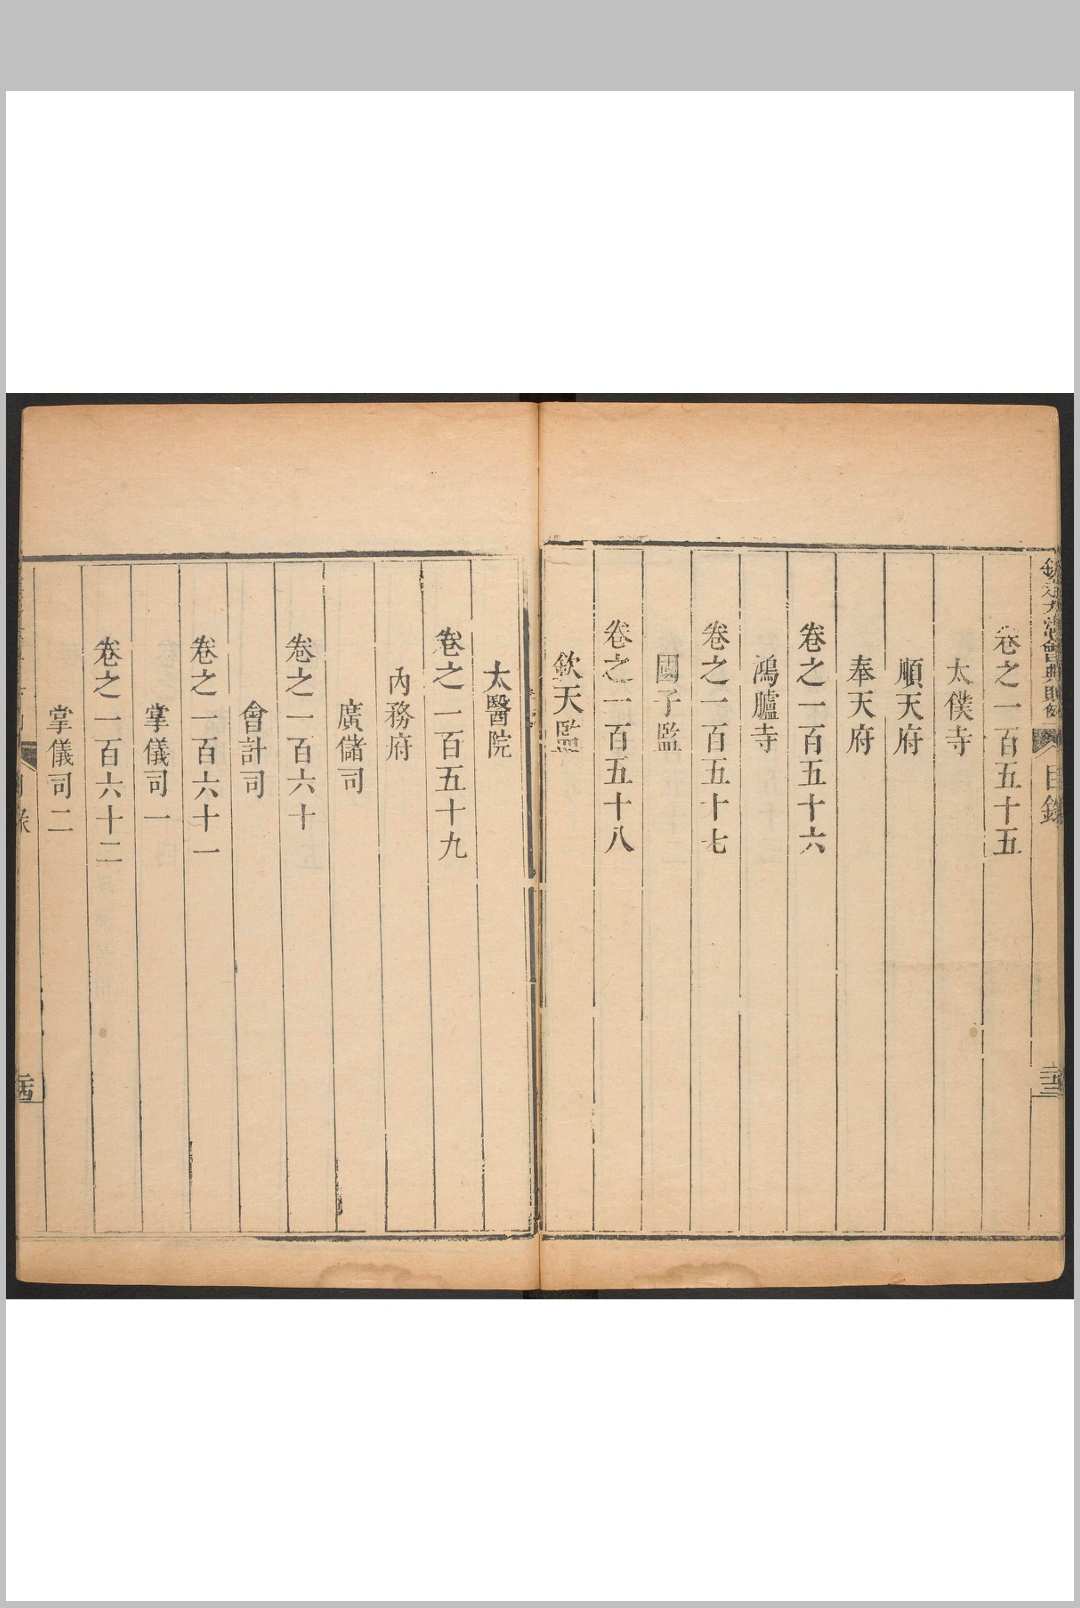 欽定大淸會典則例
目錄
二十三
卷之一百五十五
太僕寺
順天府
奉天府
卷之一百五十六
鴻臚寺
卷之一百五十七
國子監
卷之一百五十八
欽天監
太醫院
卷之一百五十九
內務府
廣儲司
卷之一百六十
會計司
卷之一百六十一
掌儀司一
卷之一百六十二
掌儀司二